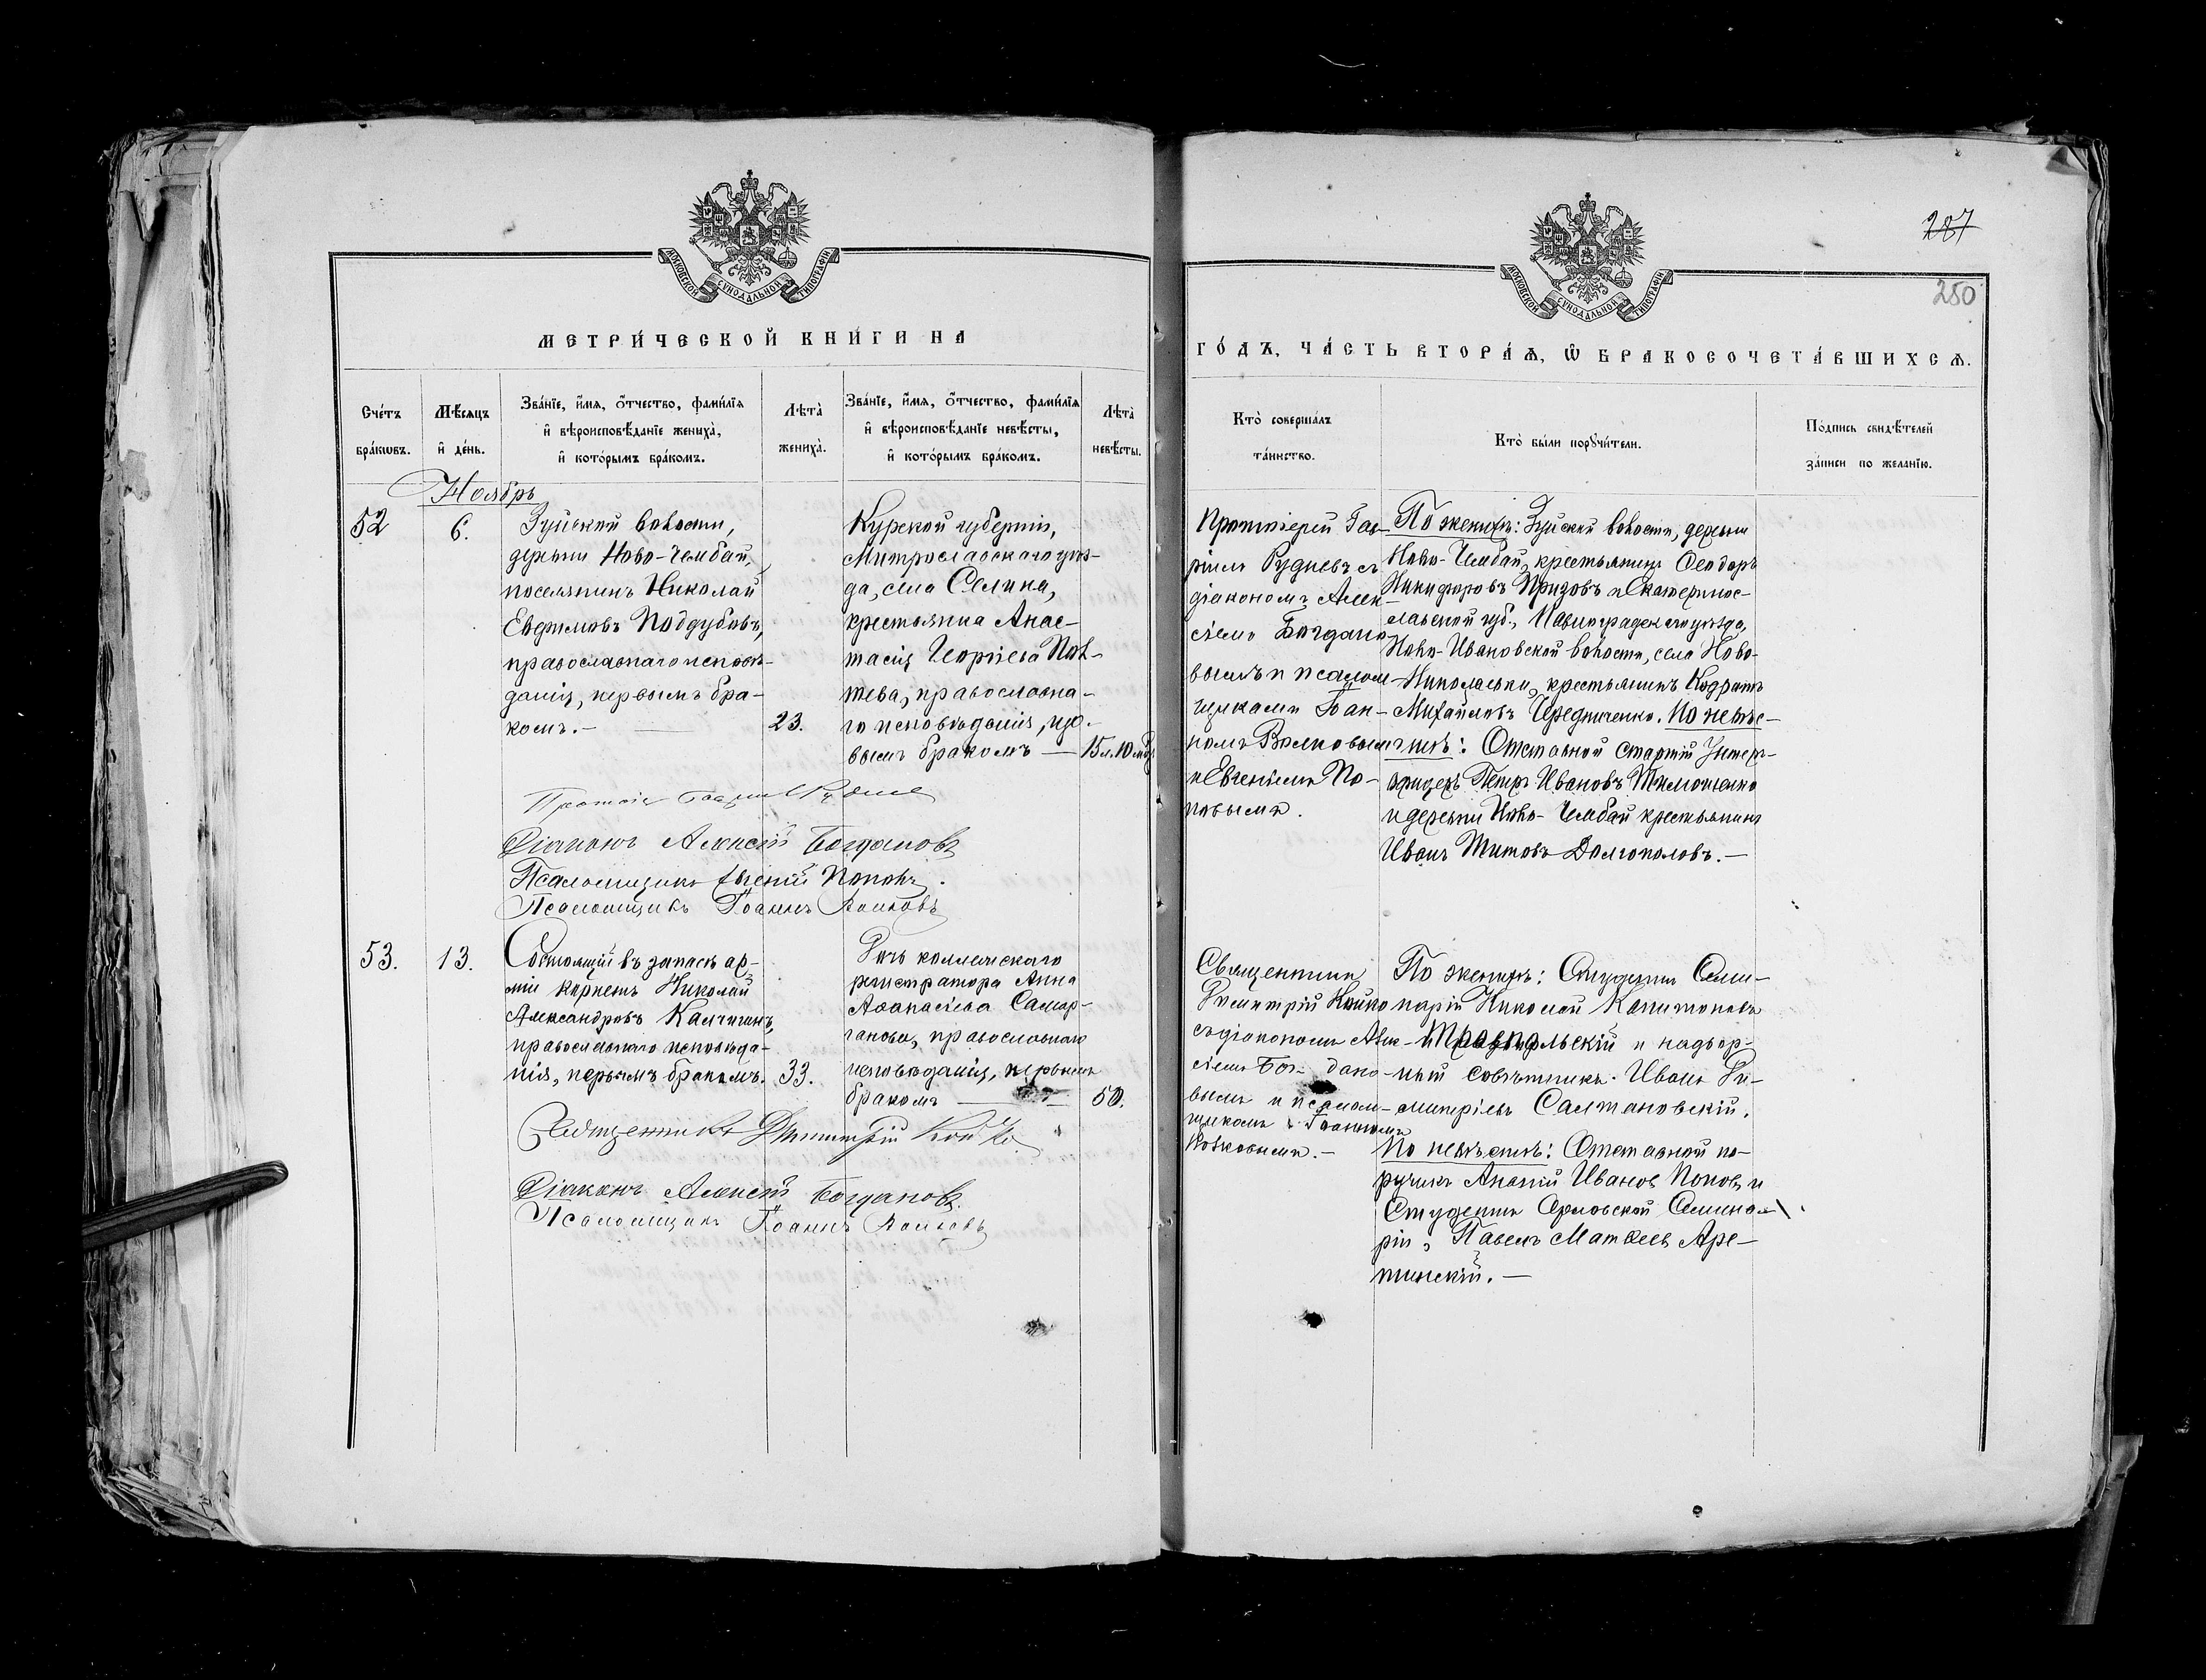 МОСКОВСКОЙ СѴНОДАЛЬНОЙ ТИПОГРАФІИ
МЕТРИ́ЧЕСКОЙ КНИ́ГИ НА
Сче́тъ бра́кѡвъ.
Мѣ́сяцъ и҆ де́нь.
Зва́нїе, и҆́мя, ѻ҆́тчество, фами́лїя
и҆ вѣроисповѣ́данїе жениха̀,
и҆ кото́рымъ бра́комъ.
Лѣта̀ жениха̀.
Зва́нїе, и҆́мя, ѻ҆́тчество, фами́лїя
и҆ вѣроисповѣ́данїе невѣ́сты,
и҆ кото́рымъ бра́комъ.
Лѣта̀ невѣ́сты.
Ноябрь
52
6.
Зуйской волости,
деревни Ново-Чембай,
поселянинъ Николай
Евфимовъ Поддубовъ,
православнаго исповѣ-
данія, первымъ бра-
комъ. —
23.
Курской губерніи,
уѣз-
да, села Селина,
крестьянка Анас-
тасія Георгіева
православна-
го исповѣданія, пер-
вымъ бракомъ —
15 л. 10 мѣс.
Діаконъ Алексій Богдановъ
Псаломщикъ Евгеній Поповъ.
Псаломщикъ Іоаннъ Волковъ
53.
13.
Состоящій въ запасѣ ар-
міи корнетъ Николай
Александровъ Калчигинъ,
православнаго исповѣда-
нія, первымъ бракомъ.
33.
Дочь коллежскаго
регистратора Анна
Аѳанасьева
православнаго
исповѣданія, первымъ
бракомъ —
50.
Священникъ Димитрій Койко
Діаконъ Алексій Богдановъ.
Псаломщикъ Іоаннъ Волковъ
287
250
МОСКОВСКОЙ СѴНОДАЛЬНОЙ ТИПОГРАФІИ
ГО́ДЪ, ЧА́СТЬ ВТОРА́Ѧ, Ѽ БРАКОСОЧЕТА́ВШИХСѦ.
Кто̀ соверша́лъ
та́инство.
Кто̀ бы́ли порꙋчи́тели.
По́дпись свидѣ́телей
за́писи по жела́нїю.
Протоіерей Гав-
ріилъ Рудневъ съ
діакономъ Алек-
сіемъ Богдано-
вымъ и псалом-
щиками Іоан-
номъ Волковымъ
и Евгеніемъ По-
повымъ.
По женихѣ: Зуйской волости, деревни
Ново-Чембай, крестьянинъ Ѳеодоръ
Никифоровъ Призовъ и Екатеринос-
лавской губ., Павлоградскаго уѣзда,
Ново-Ивановской волости, села Ново-
Николаевки, крестьянинъ Кодратъ
Михайловъ Чередниченко. По невѣс-
тѣ: Отставной старшій Унтер-
офицеръ Петръ Ивановъ Тимошенко
и деревни Ново-Чембай крестьянинъ
Иванъ Титовъ Долгополовъ. —
Священникъ
Димитрій Койко
съ діакономъ Алек-
сіемъ Богдано-
вымъ и псалом-
щикомъ Іоанномъ
Волковымъ. —
По женихѣ: Студентъ Семи-
наріи Николай Капитоновъ
и надвор-
ный совѣтникъ Иванъ Ди-
митріевъ Салтановскій.
По невѣстѣ: Отставной по-
ручикъ Анатолій Ивановъ Поповъ и
Студентъ Орловской Семина-
ріи, Павелъ Матвеевъ Аре-
тинскій. —